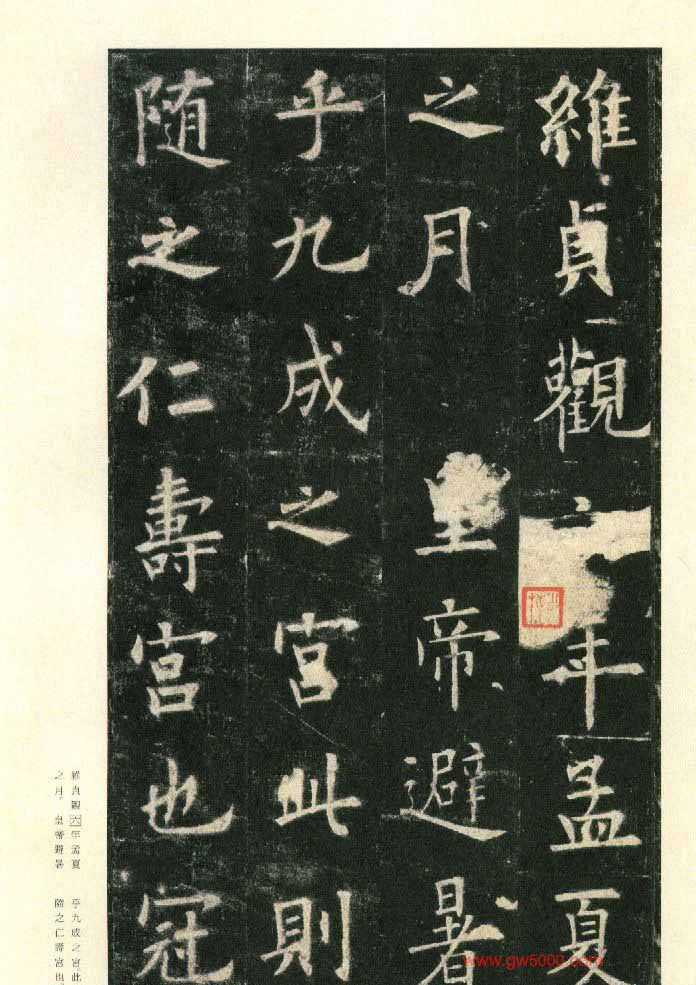 維貞觀六年孟夏
之月 皇帝避暑
乎九成之宮此則
随之仁壽宮也冠
維貞觀六年孟夏
之月，皇帝避暑
乎九成之宮此
隨之仁壽宮也，
www.gw5000.com